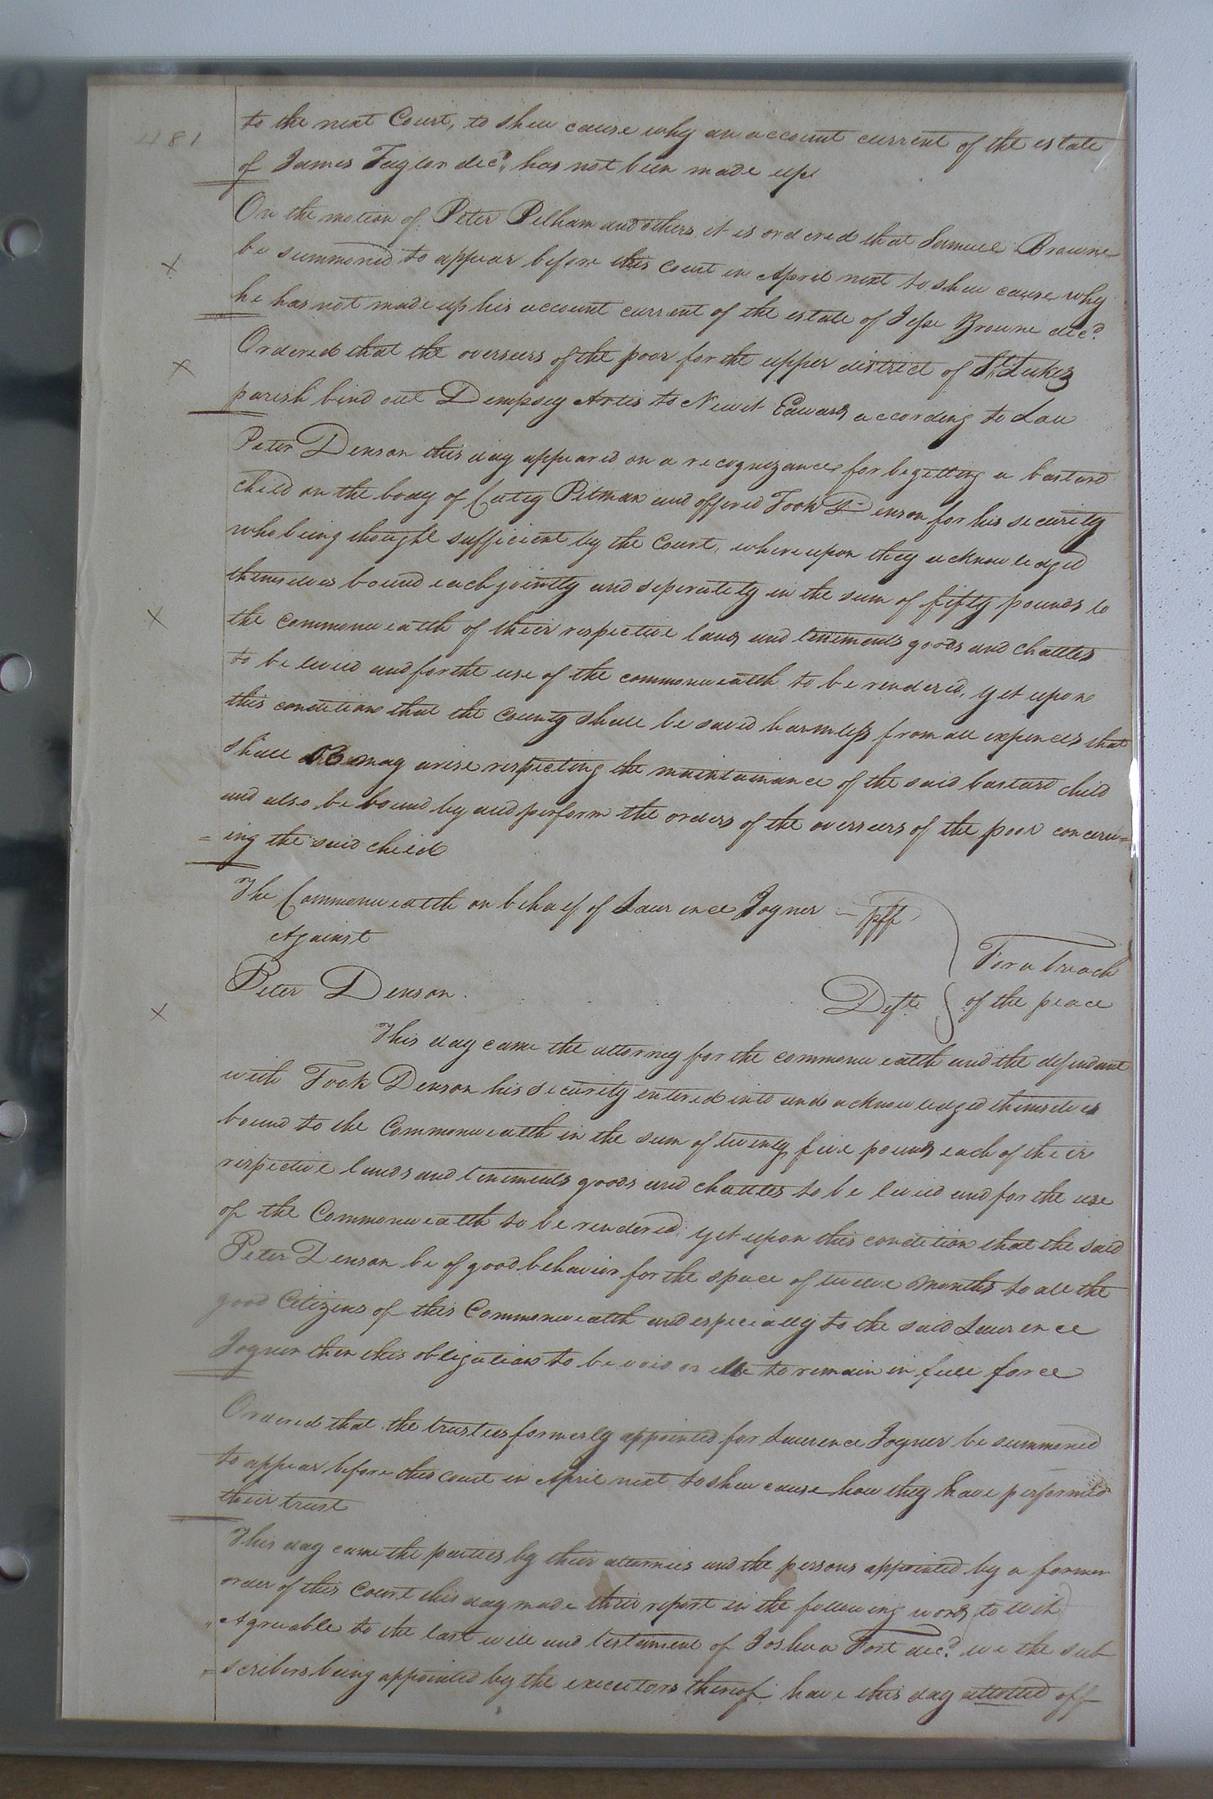 481
to the next Court, to shew cause why an account current of the estate
of James Taylor decd. has not been made up
On the motion of Peter Pelham and others it is ordered that Samuel Browne
be summoned to appear before this court in April next to shew cause why
he has not made up his account current of the estate of Jesse Browne decd.
Ordered that the overseers of the poor for the upper district of St. Lukes
parish bind out Dempsey Artis to Newit Edwards according to Law
Peter Denson this day appeared on a recognizance for begetting a bastard
child on the body of Catey Pitman and offered Took Denson for his security
who being thought sufficient by the Court, whereupon they acknowledged
themselves bound each jointly and seperately in the sum of fifty pounds to
the commonwealth of their respective lands and tenements goods and chattles
to be levied and for the use of the commonwealth to be rendered, yet upon
this condition that the County shall be saved harmless from all expences that
shall or may arise respecting the maintainance of the said bastard child
and also be bound by and perform the orders of the overseers of the poor concern-
=ing the said child
The Commonwealth on behalf of Laurence Joyner - plff
Against
For a breach
Peter Denson. Deft. of the peace
This day came the attorney for the commonwealth and the defendant
with Took Denson his security entered into and acknowledged themselves
bound to the Commonwealth in the sum of twenty five pounds each of their
respective lands and tenements goods and chattles to be levied and for the use
of the Commonwealth to be rendered; yet upon this condition that the said
Peter Denson be of good behavior for the space of twelve months to all the
good Citizens of this Commonwealth and especially to the said Laurence
Joyner then this obligation to be void or else to remain in full force
Ordered that the trustees formerly appointed for Laurence Joyner be summoned
to appear before this court in April next to shew cause how they have performed
their trust
This day came the parties by their attornies and the persons appointed by a former
order of this Court this day made their report in the following words, to wit
"Agreeable to the last will and testament of Joshua Fort decd. we the sub
=scribers being appointed by the executors thereof have this day allotted off